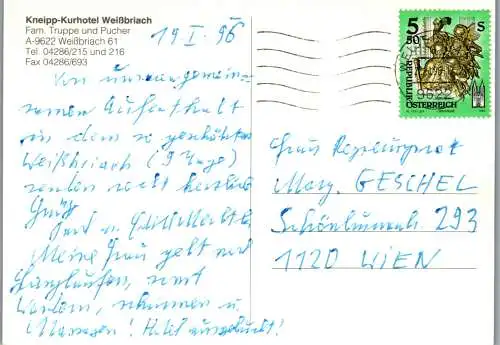 Kneipp-Kurhotel Weißbriach
Fam. Truppe und Pucher
A-9622 Weißbriach 61
Tel. 04286/215 und 216
Fax 04286/693
19 I. 96
Von unserem gemein-
samen Aufenthalt
in dem so geschätzten
Weißbriach (9 Tage)
senden recht herzliche
Grüße
Meine Frau geht noch
Langlaufen, sonst
Wandern, schwimmen u.
Massagen! Hotel ausgebucht!
5 S
50
REPUBLIK
ÖSTERREICH
9622
Herrn Regierungsrat
GESCHEL
293
1120 WIEN